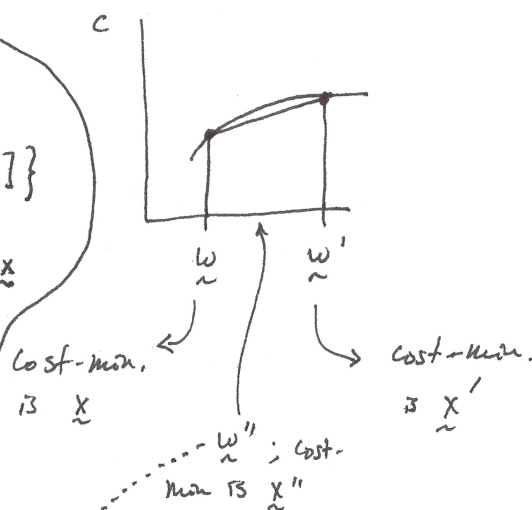 C
]}
x
w w'
Cost-min. cost-min.
is x is x'
w" ; cost-
min is x"